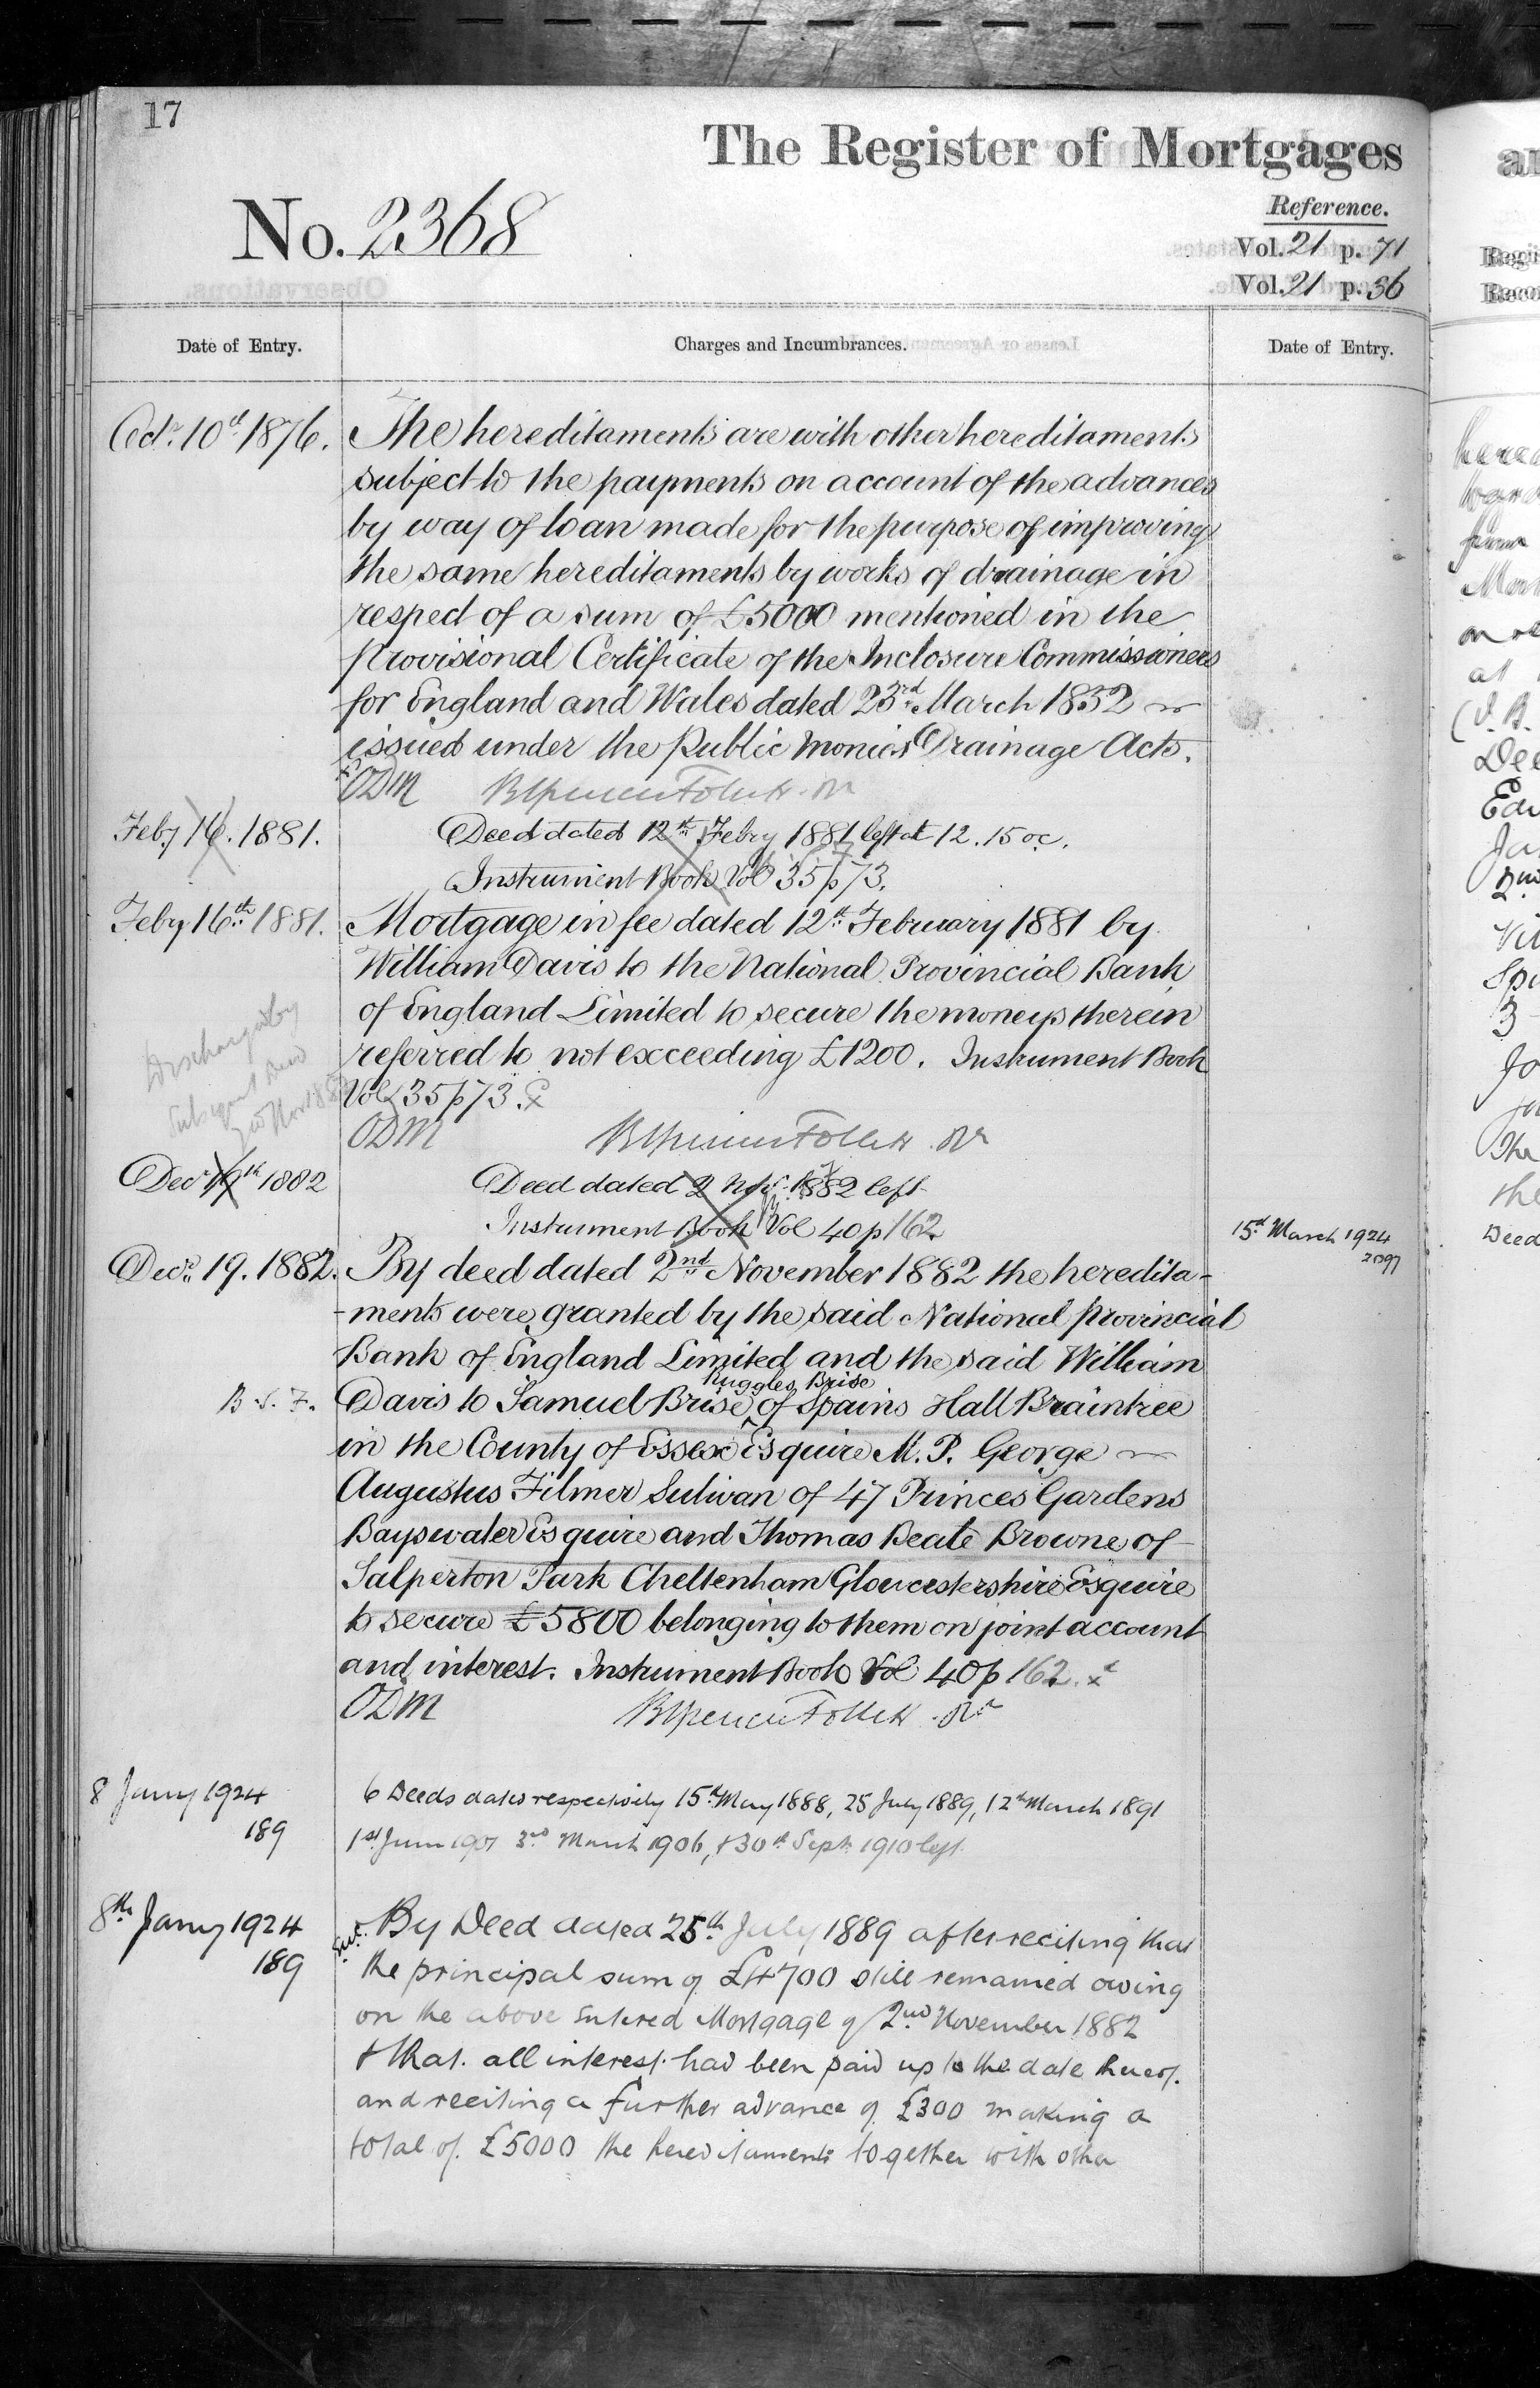 17
The Register of Mortgages
No. 2368
Reference.
Vol. 21 p. 71
Vol. 21 p. 36
Date of Entry.
Charges and Incumbrances.
Date of Entry.
Octr. 10th 1876. The hereditaments are with other hereditaments
subject to the payments on account of the advances
by way of loan made for the purpose of improving
the same hereditaments by works of drainage in
respect of a sum of £5000 mentioned in the
Provisional Certificate of the Inclosure Commissioners
for England and Wales dated 23rd March 1852
issued under the Public Monies Drainage Acts.
ODM
Feby 16. 1881. Deed dated 12th Febry 1881 left at 12.15 oc.
Instrument Book Vol 35 p 73.
Feby 16th 1881. Mortgage in fee dated 12th February 1881 by
William Davis to the National Provincial Bank
of England Limited to secure the moneys therein
referred to not exceeding £1200. Instrument Book
Vol 35 p 73.
Discharged by
Subsequent Deed
2nd Novr 1882
ODM
Decr 19th 1882 Deed dated 2 Novr. 1882 left
Instrument Book Vol 40 p 162
Decr. 19. 1882. By deed dated 2nd November 1882 the heredita-
-ments were granted by the said National Provincial
Bank of England Limited and the said William
Ruggles Brise
B. S. F. Davis to Samuel Brise of Spains Hall Braintree
in the County of Essex Esquire M. P. George
Augustus Filmer Sulivan of 47 Princes Gardens
Bayswater Esquire and Thomas Beale Browne of
Salperton Park Cheltenham Gloucestershire Esquire
to secure £5800 belonging to them on joint account
and interest. Instrument Book Vol 40 p 162.
ODM
15th March 1924
8 Jany 1924 6 Deeds dated respectively 15th May 1888, 25 July 1889, 12th March 1891
189 1st June 1901 3rd March 1906, & 30th Sept. 1910 left
8th Jany 1924 By Deed dated 25th July 1889 after reciting that
189 the principal sum of £4700 still remained owing
on the above entered Mortgage of 2nd November 1882
& that all interest had been paid up to the date thereof
and reciting a further advance of £300 making a
total of £5000 the hereditaments together with other